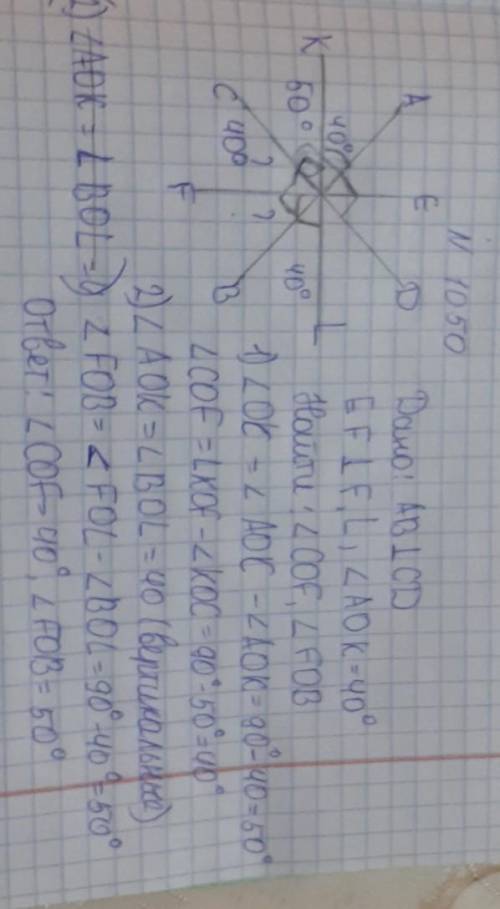 N 1050
Дано: AB⊥CD
EF⊥F,L, ∠AOK=40°
Найти: ∠COF, ∠FOB
K
A
E
D
L
B
F
C
50°
40°
40°
?
?
40°
1) ∠OK = ∠AOC - ∠AOK = 90° - 40 = 50°
∠COF = ∠KOF - ∠KOC = 90° - 50° = 40°
2) ∠AOK = ∠BOL = 40 (вертикальные)
2) ∠AOK = ∠BOL =) ∠FOB = ∠FOL - ∠BOL = 90° - 40° = 50°
Ответ: ∠COF = 40°, ∠FOB = 50°